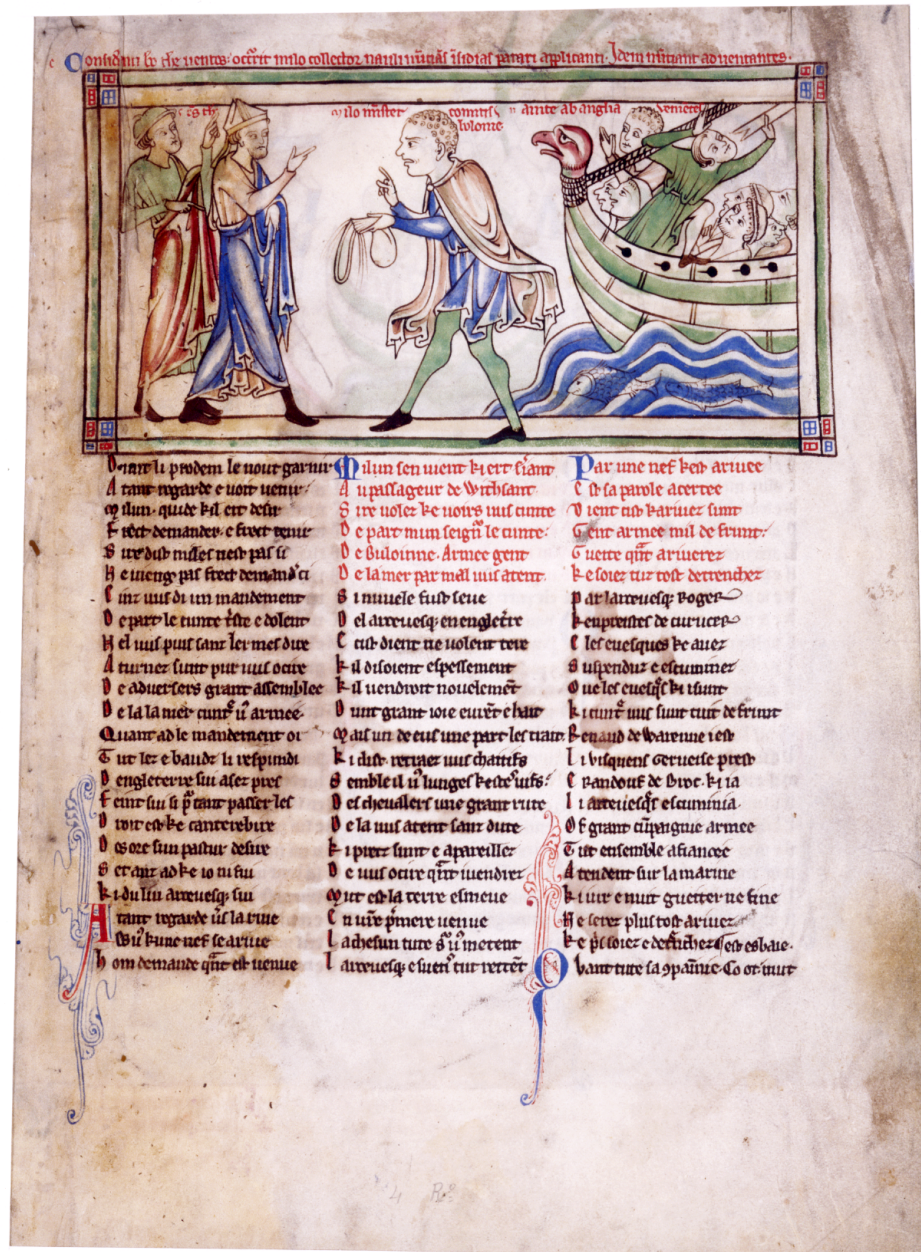 occurrit milo collector nauli
milo minister comitis
bolonie
ab anglia
Deuant li prodem le vout garnir
A tant regarde e voit venir
Milun quide kil eit desir
Frect demander e frect tenir
Sire dist milles nest pas si
Ne vieng pas frect demander ci
Einz vus di un mandement
De part le cunte triste e dolent
Nel vus puis sanz lermes dire
Aturnez sunt pur vus ocire
De adversers grant assemblee
De la la mer cuntre vus armee
Quant ad le mandement oi
Tut lez e baudz li respundi
Dengleterre sui asez pres
Feint sui si par tant passer les
Droit est ke canterebire
Des ore sun pastur desire
Set anz ad ke io ni fu
Ki du liu arcevesque sui
Atant regarde vers la rive
Ke une nef se arive
Hom demande quant est venue
Milun sen vient ki ert siant
Au passageur de Withsant
Sire volez ke voirs vus cunte
De part mun seignur le cunte
De Buloinne Armee gent
De la mer par mal vus atent
Si nuvele fust seue
Del arcevesque en engletere
Cist dient ne volent tere
Kil disoient espessement
Kil vendroit novelement
Dunt grant ioie eurent e hait
Mais un de eus une part les trait
Ki dist retraez vus chaitifs
Semble il vus lunges kestes vifs
Des chevalers une grant rute
De la vus atent sanz dute
Ki prez sunt e apareillez
De vus ocire quant i vendrez
Mut est la terre esmeue
En vostre premere venue
Lachesun tute sur vus metent
Larcevesque e suen tut rettent
Par une nef kest arivee
Est sa parole acertee
Dient cist karivez sunt
Gent armee mil de frunt
Guette quant ariverez
Ke soiez tut tost detrenchez
Par larcevesque Roger
Ken preistes de curucer
E les evesques ke avez
Suspenduz e escuminez
Ove les evesques ki i sunt
Ki cuntre vus sunt tuit de frunt
Renaud de Warenne i est
Li visquens Gerveise prest
E Randouf de Broc ki ia
Li arcevesques escuminia
Of grant cumpaignie armee
Tut ensemble afiancee
Atendent sur la marine
Ki iur e nuit guetter ne fine
Ne serez plus tost arivez
Ke pris soiez e detrenchez
Ovant tute sa